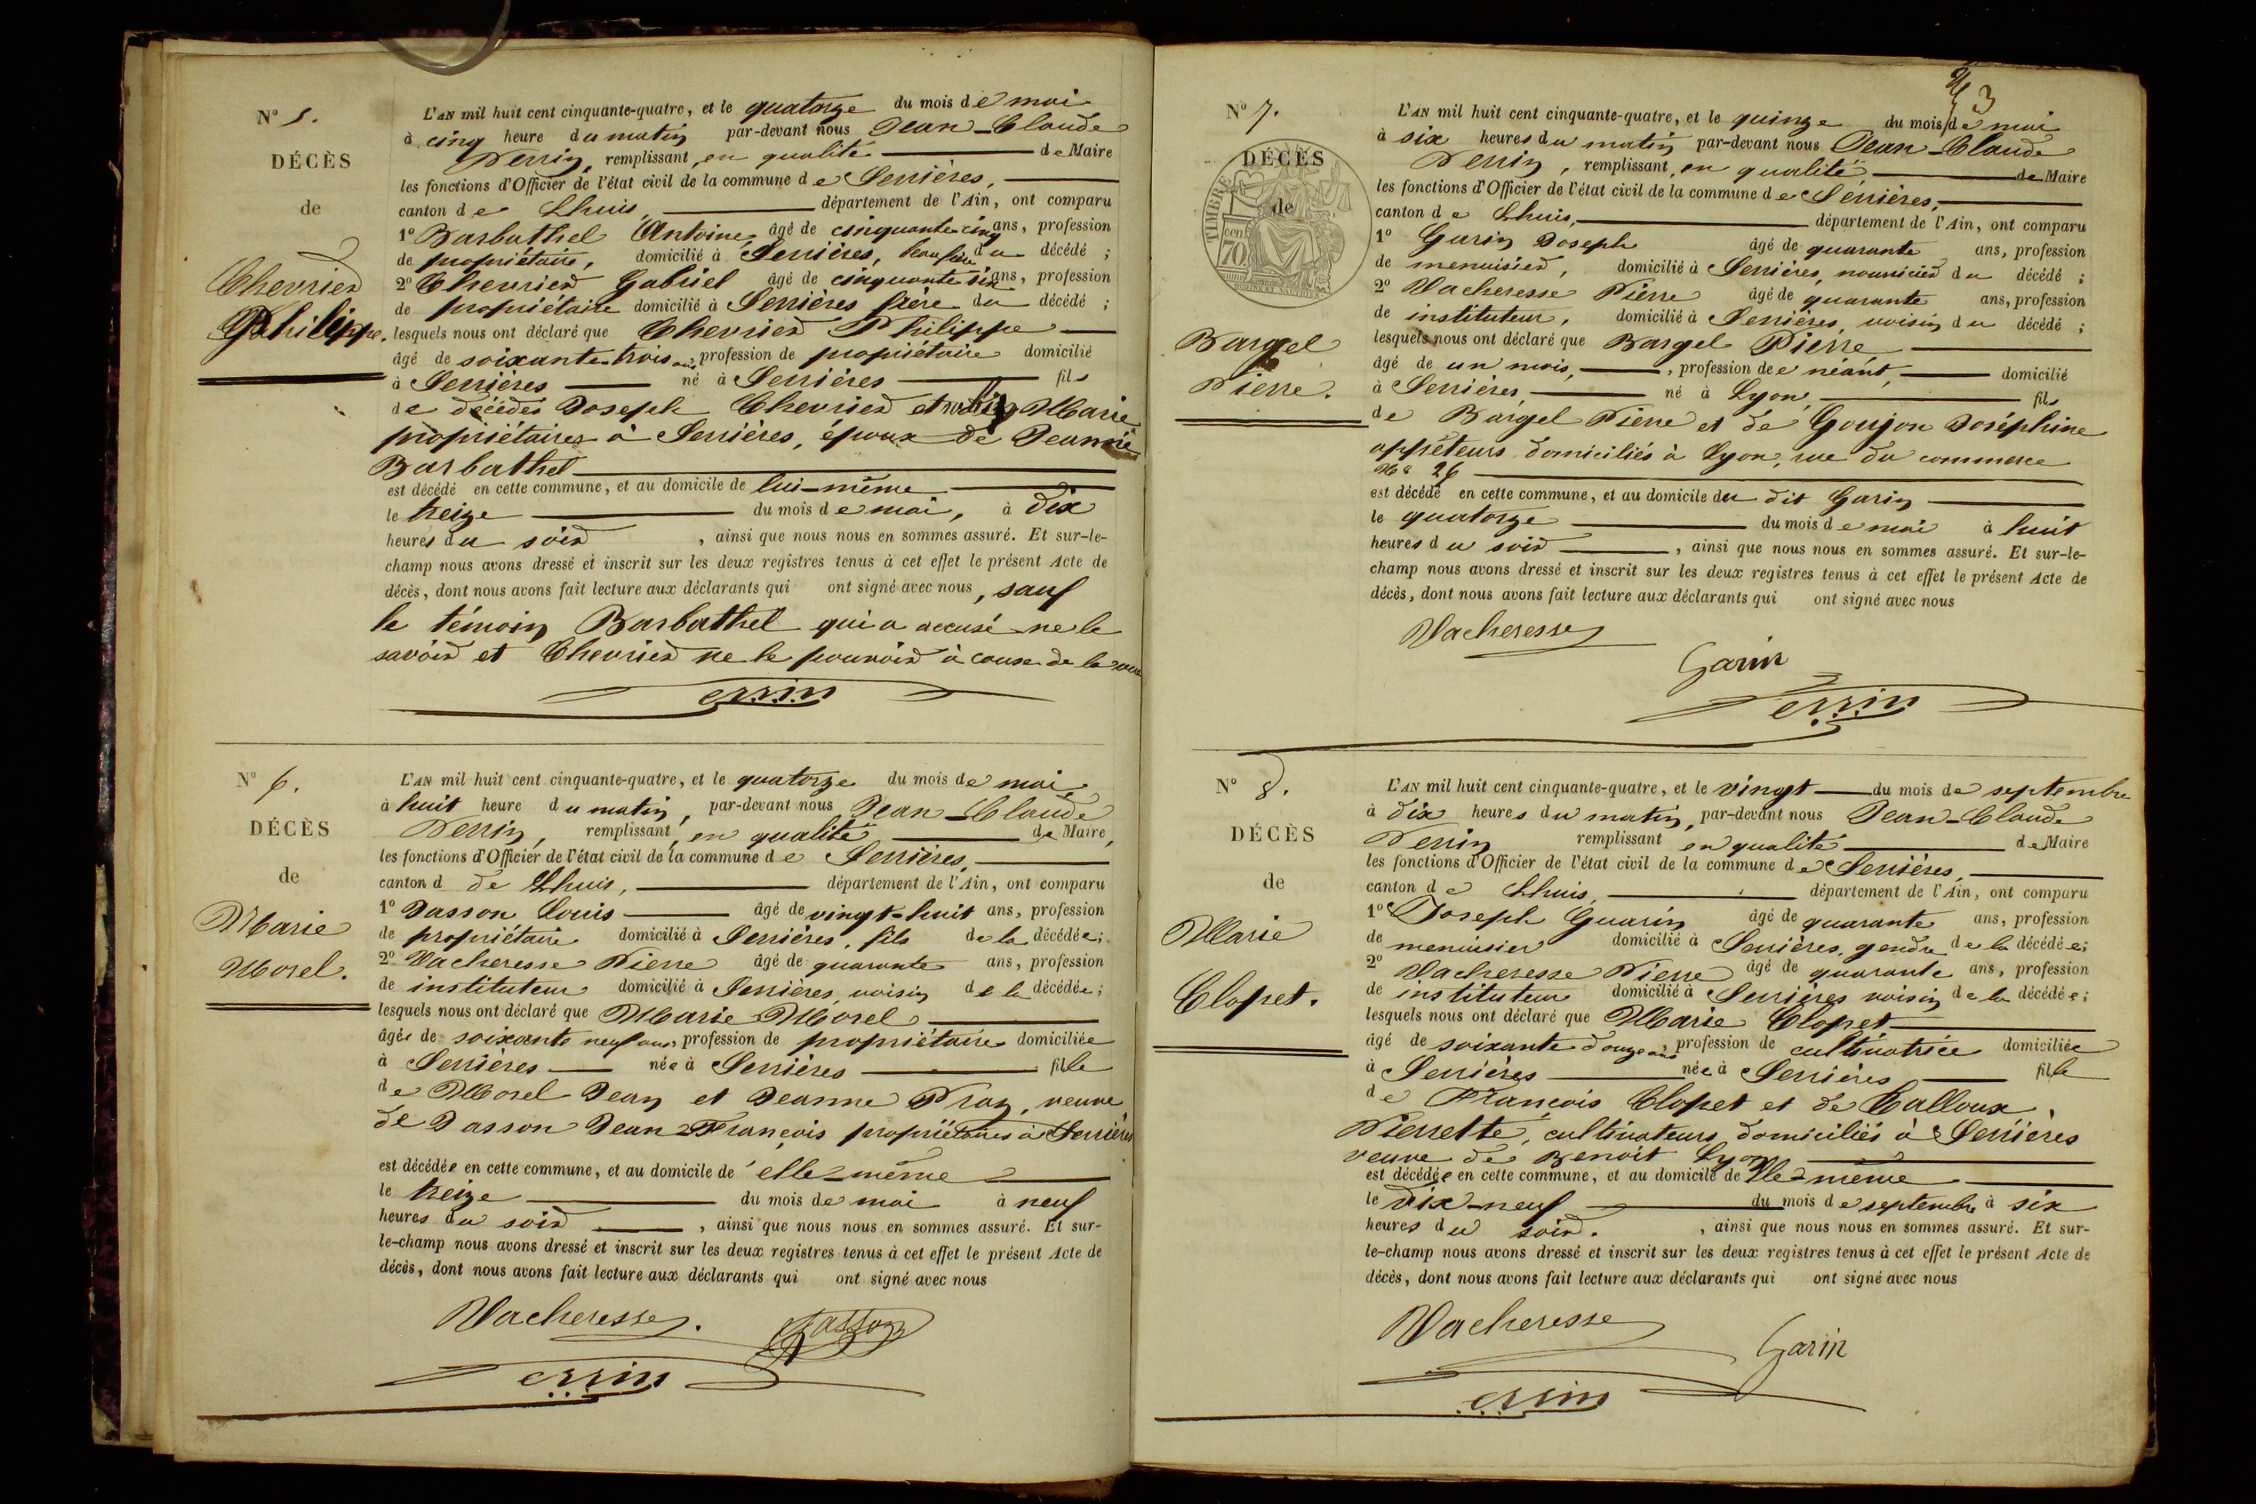 N° 5.
DÉCÈS
de
Chevrier
Philippe.
L'AN mil huit cent cinquante-quatre, et le quatorze du mois de mai
à cinq heure du matin par-devant nous Jean-Claude
Perrin, remplissant, en qualité de Maire
les fonctions d'Officier de l'état civil de la commune de Serrières,
canton de Lhuis, département de l'Ain, ont comparu
1° Barbathel Antoine, âgé de cinquante cinq ans, profession
de propriétaire, domicilié à Serrières, beau frère du décédé ;
2° Chevrier Gabriel âgé de cinquante six ans, profession
de propriétaire domicilié à Serrières frère du décédé ;
lesquels nous ont déclaré que Chevrier Philippe
âgé de soixante-trois ans, profession de propriétaire domicilié
à Serrières né à Serrières fils
de décédés Joseph Chevrier et Marie
propriétaires à Serrières, époux de Jeannie
Barbathel
est décédé en cette commune, et au domicile de lui-même
le treize du mois de mai, à dix
heures du soir, ainsi que nous nous en sommes assuré. Et sur-le-
champ nous avons dressé et inscrit sur les deux registres tenus à cet effet le présent Acte de
décès, dont nous avons fait lecture aux déclarants qui ont signé avec nous, sauf
le témoin Barbathel qui a accusé ne le
savoir et Chevrier ne le pouvoir à cause de la vue
Perrin
N° 6.
DÉCÈS
de
Marie
Morel.
L'AN mil huit cent cinquante-quatre, et le quatorze du mois de mai
à huit heure du matin, par-devant nous Jean-Claude
Perrin, remplissant, en qualité de Maire,
les fonctions d'Officier de l'état civil de la commune de Serrières,
canton d de Lhuis, département de l'Ain, ont comparu
1° Dasson Louis âgé de vingt-huit ans, profession
de propriétaire domicilié à Serrières, fils de la décédée ;
2° Vacheresse Pierre âgé de quarante ans, profession
de instituteur domicilié à Serrières, voisin de la décédée ;
lesquels nous ont déclaré que Marie Morel
âgée de soixante neuf ans, profession de propriétaire domiciliée
à Serrières née à Serrières fille
de Morel Jean et Jeanne Proz, veuve
de Dasson Jean François propriétaires à Serrières
est décédée en cette commune, et au domicile de elle-même
le treize du mois de mai à neuf
heures du soir, ainsi que nous nous en sommes assuré. Et sur-
le-champ nous avons dressé et inscrit sur les deux registres tenus à cet effet le présent Acte de
décès, dont nous avons fait lecture aux déclarants qui ont signé avec nous
Vacheresse. Dasson
Perrin
3
N° 7.
DÉCÈS
de
TIMBRE
70 cent
Bargel
Pierre.
L'AN mil huit cent cinquante-quatre, et le quinze du mois de mai
à six heures du matin par-devant nous Jean-Claude
Perrin, remplissant, en qualité de Maire
les fonctions d'Officier de l'état civil de la commune de Serrières,
canton de Lhuis, département de l'Ain, ont comparu
1° Garin Joseph âgé de quarante ans, profession
de menuisier, domicilié à Serrières, nouricier du décédé ;
2° Vacheresse Pierre âgé de quarante ans, profession
de instituteur, domicilié à Serrières, voisin du décédé ;
lesquels nous ont déclaré que Bargel Pierre
âgé de un mois, profession de néant, domicilié
à Serrières, né à Lyon, fils
de Bargel Pierre et de Goujon Joséphine
appréteurs domiciliés à Lyon, rue du commerce
N° 26
est décédé en cette commune, et au domicile du dit Garin
le quatorze du mois de mai à huit
heures du soir, ainsi que nous nous en sommes assuré. Et sur-le-
champ nous avons dressé et inscrit sur les deux registres tenus à cet effet le présent Acte de
décès, dont nous avons fait lecture aux déclarants qui ont signé avec nous
Vacheresse
Garin
Perrin
N° 8.
DÉCÈS
de
Marie
Clopet.
L'AN mil huit cent cinquante-quatre, et le vingt du mois de septembre
à dix heures du matin, par-devant nous Jean-Claude
Perrin remplissant en qualité de Maire
les fonctions d'Officier de l'état civil de la commune de Serrières,
canton de Lhuis, département de l'Ain, ont comparu
1° Joseph Guarin âgé de quarante ans, profession
de menuisier domicilié à Serrières, gendre de la décédée ;
2° Vacheresse Pierre âgé de quarante ans, profession
de instituteur domicilié à Serrières voisin de la décédée ;
lesquels nous ont déclaré que Marie Clopet
âgé de soixante douze ans, profession de cultivatrice domiciliée
à Serrières née à Serrières fille
de François Clopet et de Calloux
Pierrette, cultivateurs domiciliés à Serrières
veuve de Benoit Lyon
est décédée en cette commune, et au domicile de elle-même
le dix-neuf du mois de septembre à six
heures du soir. , ainsi que nous nous en sommes assuré. Et sur-
le-champ nous avons dressé et inscrit sur les deux registres tenus à cet effet le présent Acte de
décès, dont nous avons fait lecture aux déclarants qui ont signé avec nous
Vacheresse Garin
Perrin